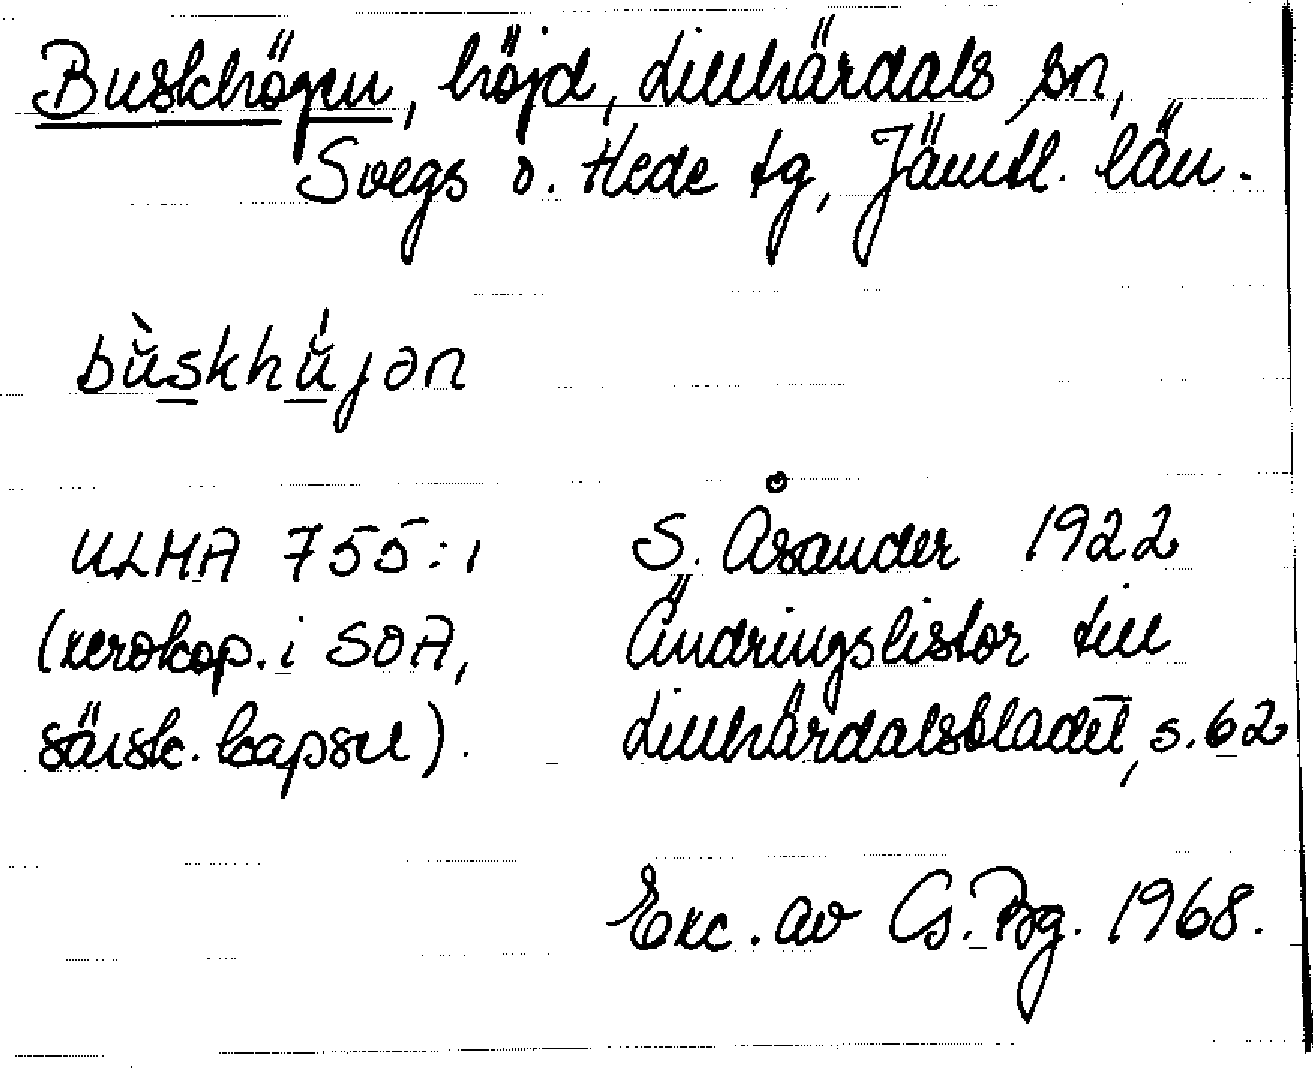 Buskhögen, höjd, Lillhärdals sn,
Svegs o. Hede tg, Jämtl. län.
bùskhú̆jən
ULMA 755:1
(xerokop. i SOA,
särsk. kapsel).
S. Åsander 1922
Ändringslistor till
Lillhärdalsbladet, s. 62
Exc. av Cs. Bg. 1968.